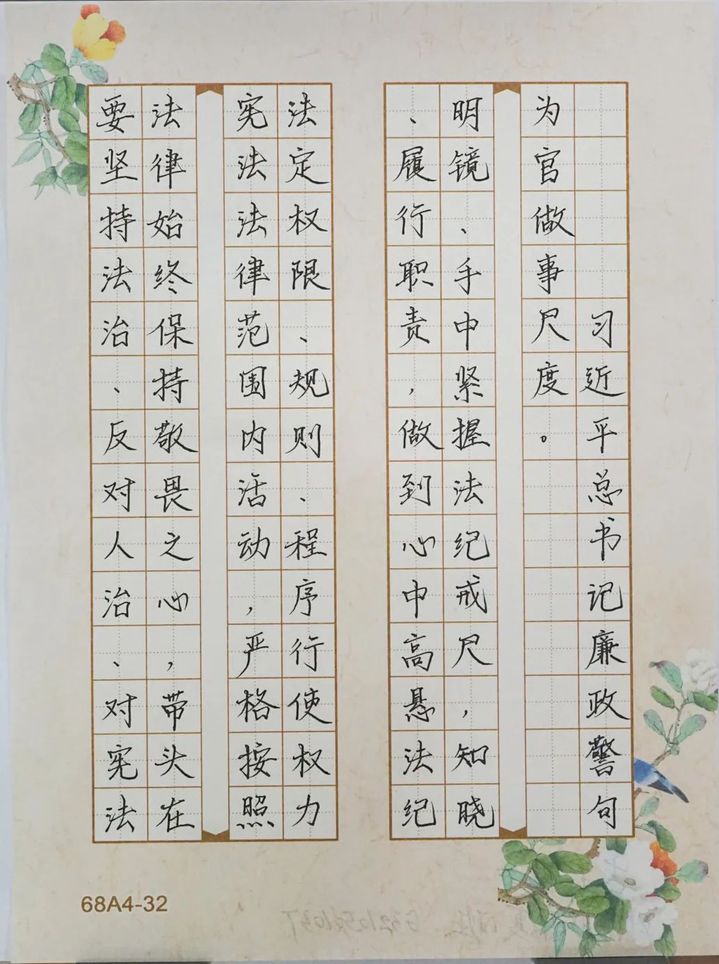 要坚持法治、反对人治、对宪法
法律始终保持敬畏之心，带头在
宪法法律范围内活动，严格按照
法定权限、规则、程序行使权力
、履行职责，做到心中高悬法纪
明镜、手中紧握法纪戒尺，知晓
为官做事尺度。
习近平总书记廉政警句
68A4-32